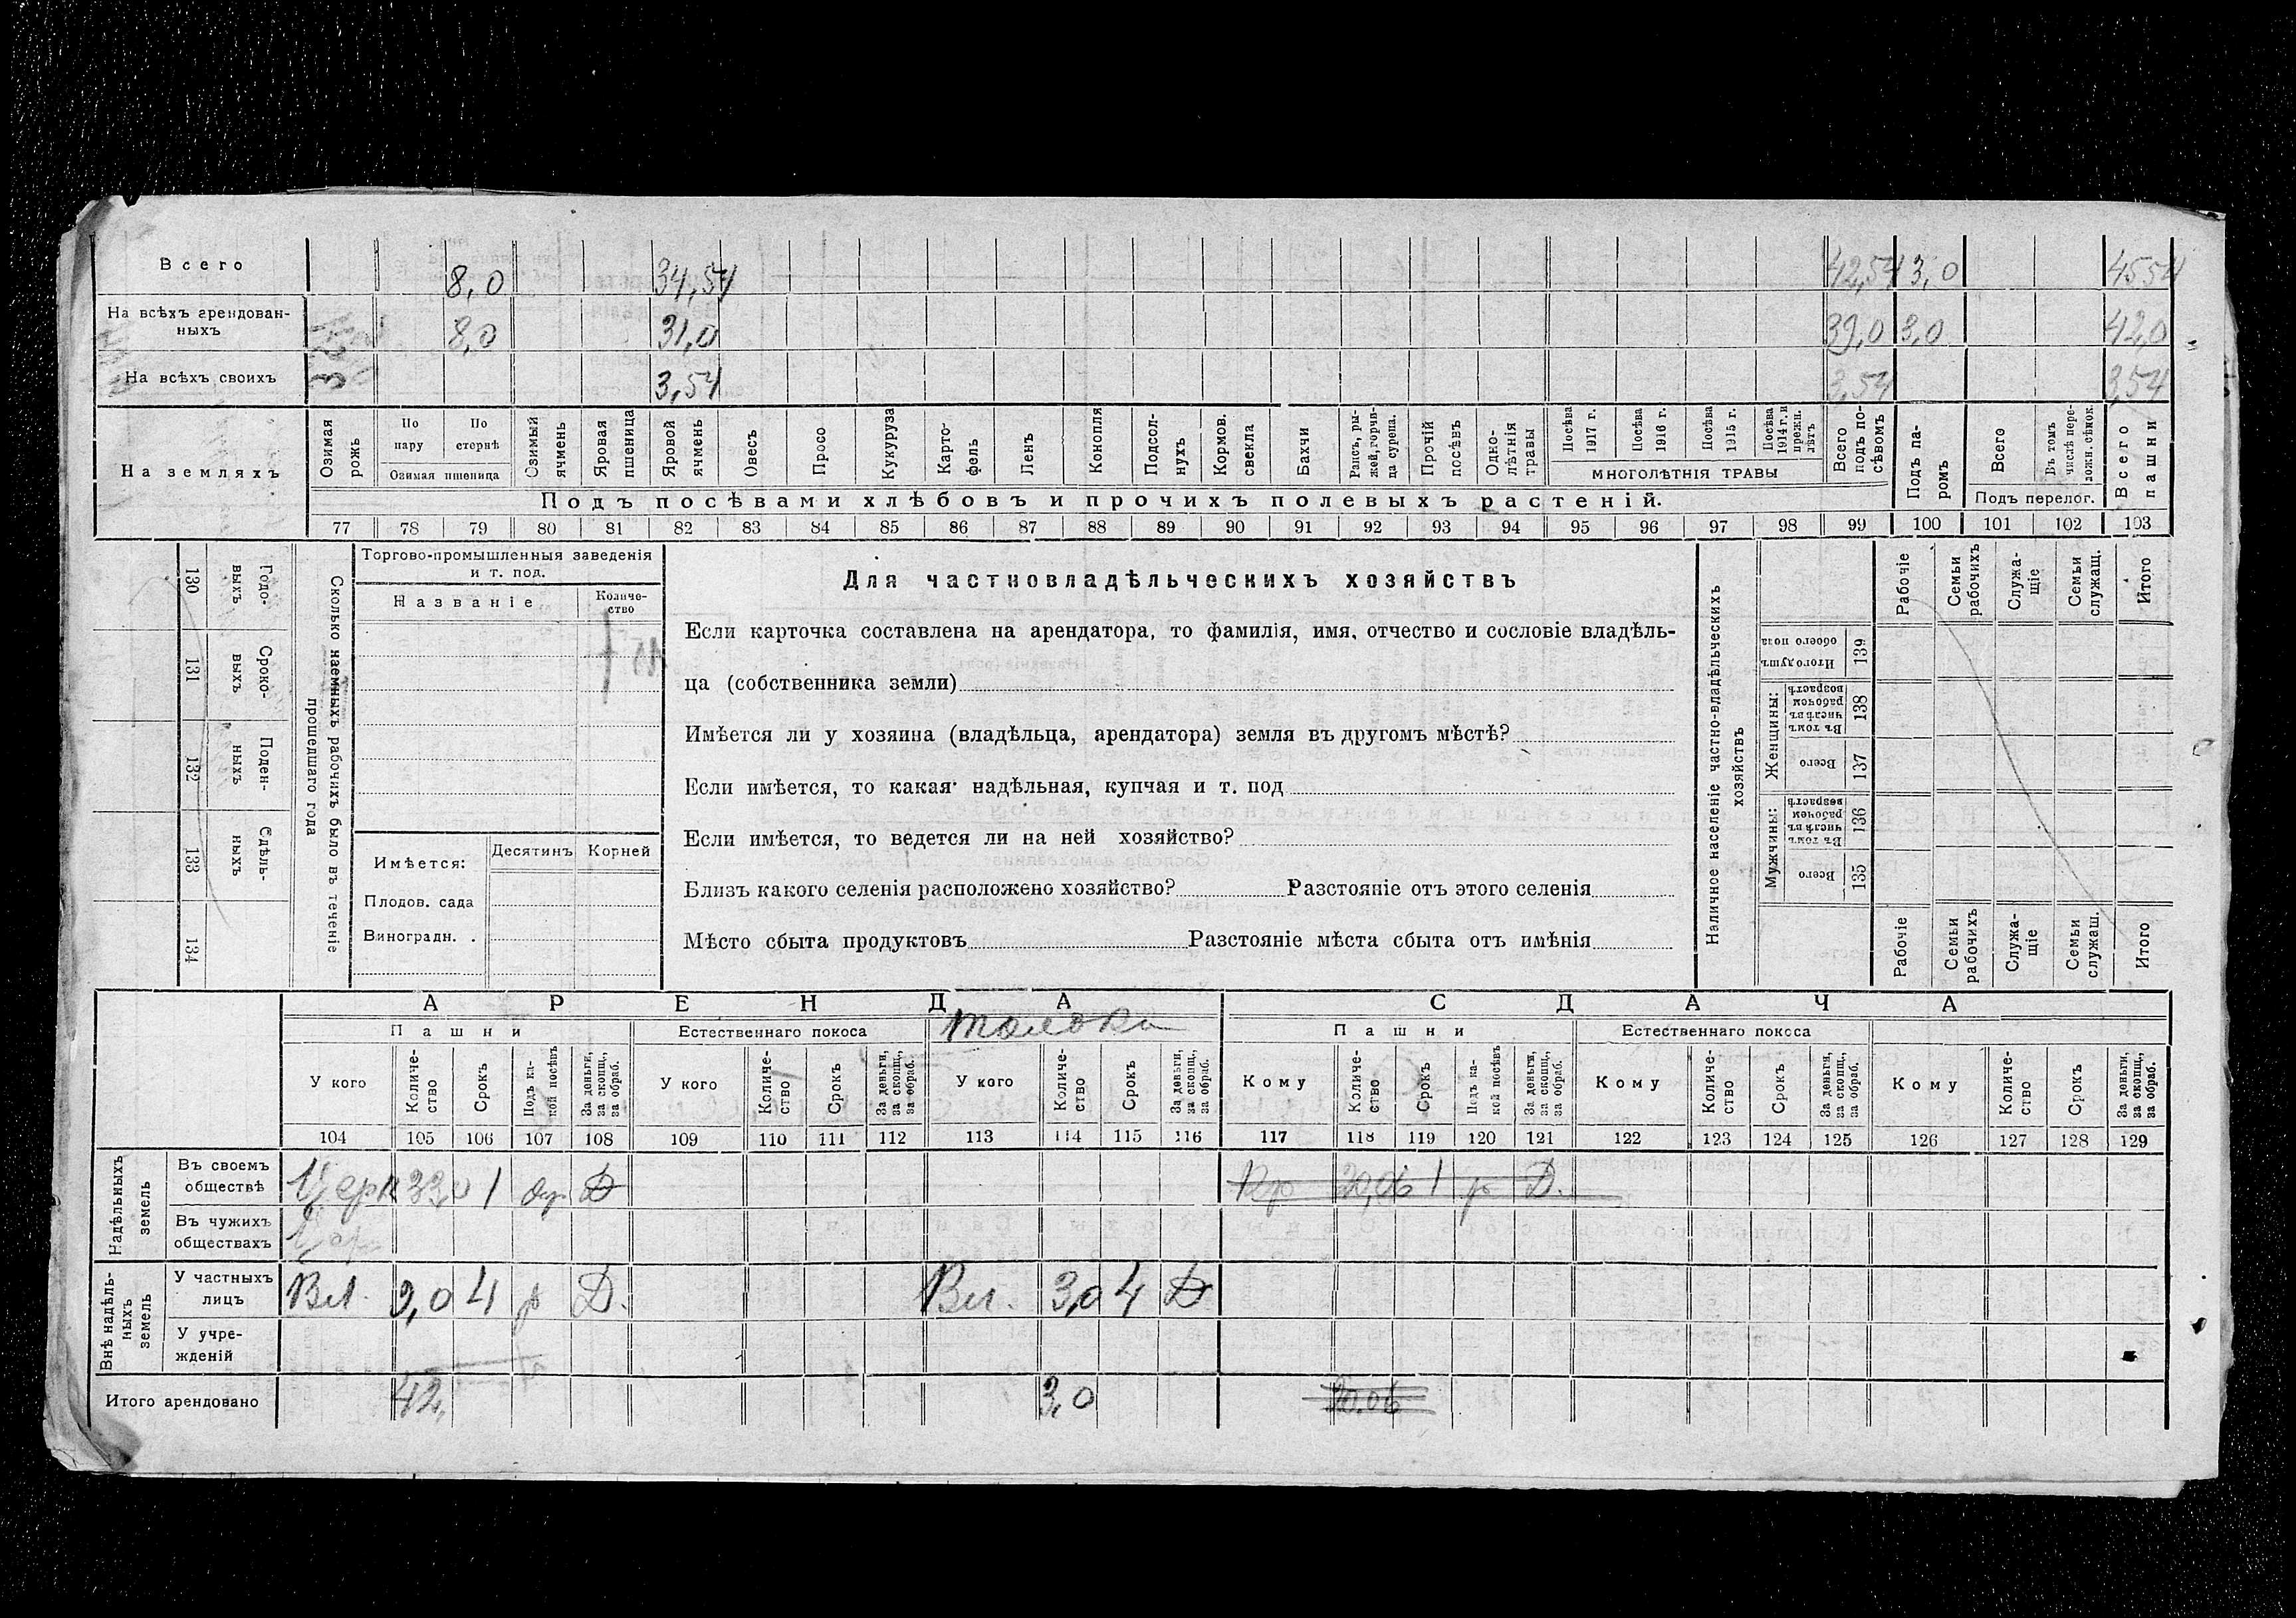 Всего 8,0 34,54 42,54 3,0 4554
На всѣхъ арендован-
ныхъ 8,0 31,0 39,0 3,0 42,0
На всѣхъ своихъ 3,54 3,54 3,54
На земляхъ
Озимая рожь
По пару
По стернѣ
Озимая пшеница
Озимый ячмень
Яровая пшеница
Яровой ячмень
Овесъ
Просо
Кукуруза
Карто-
фель
Ленъ
Конопля
Подсол-
нухъ
Кормов. свекла
Бахчи
Рапсъ, ры-
жей, горчи-
ца сурепа.
Прочій посѣвъ
Одно-
лѣтнія травы
Посѣва 1917 г.
Посѣва 1916 г.
Посѣва 1915 г.
Посѣва 1914 г. и прежн. лѣтъ
МНОГОЛѢТНІЯ ТРАВЫ
Всего подъ по-
сѣвомъ
Подъ па-
ромъ
Всего
Въ томъ числѣ пере-
ложн. сѣнок.
Подъ перелог.
Всего пашни
Подъ посѣвами хлѣбовъ и прочихъ полевыхъ растеній.
77 78 79 80 81 82 83 84 85 86 87 88 89 90 91 92 93 94 95 96 97 98 99 100 101 102 103
130 Годо-
выхъ
131 Сроко-
выхъ
132 Поден-
ныхъ
133 Сдѣль-
ныхъ
134
Сколько наемныхъ рабочихъ было въ теченіе
прошедшаго года
Торгово-промышленныя заведенія
и т. под.
Названіе
Количе-
ство
Имѣется: Десятинъ Корней
Плодов. сада
Виноградн. .
Для частновладѣльческихъ хозяйствъ
Если карточка составлена на арендатора, то фамилія, имя, отчество и сословіе владѣль-
ца (собственника земли)
Имѣется ли у хозяина (владѣльца, арендатора) земля въ другомъ мѣстѣ?
Если имѣется, то какая надѣльная, купчая и т. под
Если имѣется, то ведется ли на ней хозяйство?
Близъ какого селенія расположено хозяйство? Разстояніе отъ этого селенія
Мѣсто сбыта продуктовъ Разстояніе мѣста сбыта отъ имѣнія
Наличное населеніе частно-владѣльческихъ
хозяйствъ
Рабочіе
Семьи рабочихъ
Служа-
щіе
Семьи служащ.
Итого
Итого душъ обоего пола 139
Женщины:
Въ томъ числѣ въ рабочем возрастѣ 138
Всего 137
Мужчины:
Въ томъ числѣ въ рабочем возрастѣ 136
Всего 135
Рабочіе
Семьи рабочихъ
Служа-
щіе
Семьи служащ.
Итого
АРЕНДА СДАЧА
Пашни Естественнаго покоса толока Пашни Естественнаго покоса
У кого
Количе-
ство
Срокъ
Подъ ка-
кой посѣвъ
За деньги, за скопщ., за обраб.
У кого
Количе-
ство
Срокъ
За деньги, за скопщ., за обраб.
У кого
Количе-
ство
Срокъ
За деньги, за скопщ., за обраб.
Кому
Количе-
ство
Срокъ
Подъ ка-
кой посѣвъ
За деньги, за скопщ., за обраб.
Кому
Количе-
ство
Срокъ
За деньги, за скопщ., за обраб.
Кому
Количе-
ство
Срокъ
За деньги, за скопщ., за обраб.
104 105 106 107 108 109 110 111 112 113 114 115 116 117 118 119 120 121 122 123 124 125 126 127 128 129
Надѣльныхъ
земель
Въ своемъ
обществѣ 33,0 1 Д Кр 20,06 1 р Д.
Въ чужихъ
обществахъ
Внѣ надѣль-
ныхъ
земель
У частныхъ
лицъ Вл. 9,0 4 р Д. Вл. 3,0 4 Д
У учре-
жденій
Итого арендовано 42, 3,0 20.06